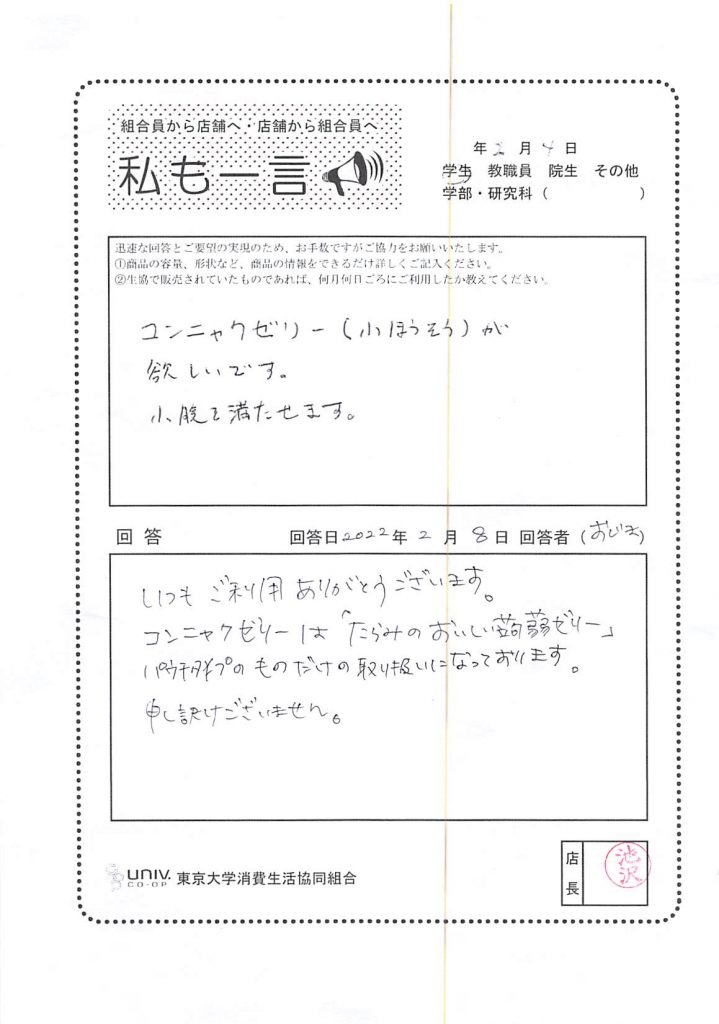 組合員から店舗へ・店舗から組合員へ
私も一言
年2月4日
学生 教職員 院生 その他
学部・研究科( )
迅速な回答とご要望の実現のため、お手数ですがご協力をお願いいたします。
①商品の容量、形状など、商品の情報をできるだけ詳しくご記入ください。
②生協で販売されていたものであれば、何月何日ごろにご利用したか教えてください。
コンニャクゼリー(小ほうそう)が
欲しいです。
小腹を満たせます。
回答 回答日2022年2月8日 回答者(おじま)
いつもご利用ありがとうございます。
コンニャクゼリーは「たらみのおいしい蒟蒻ゼリー」
パウチタイプのものだけの取り扱いになっております。
申し訳けございません。
UNIV. CO-OP 東京大学消費生活協同組合
店長
池沢